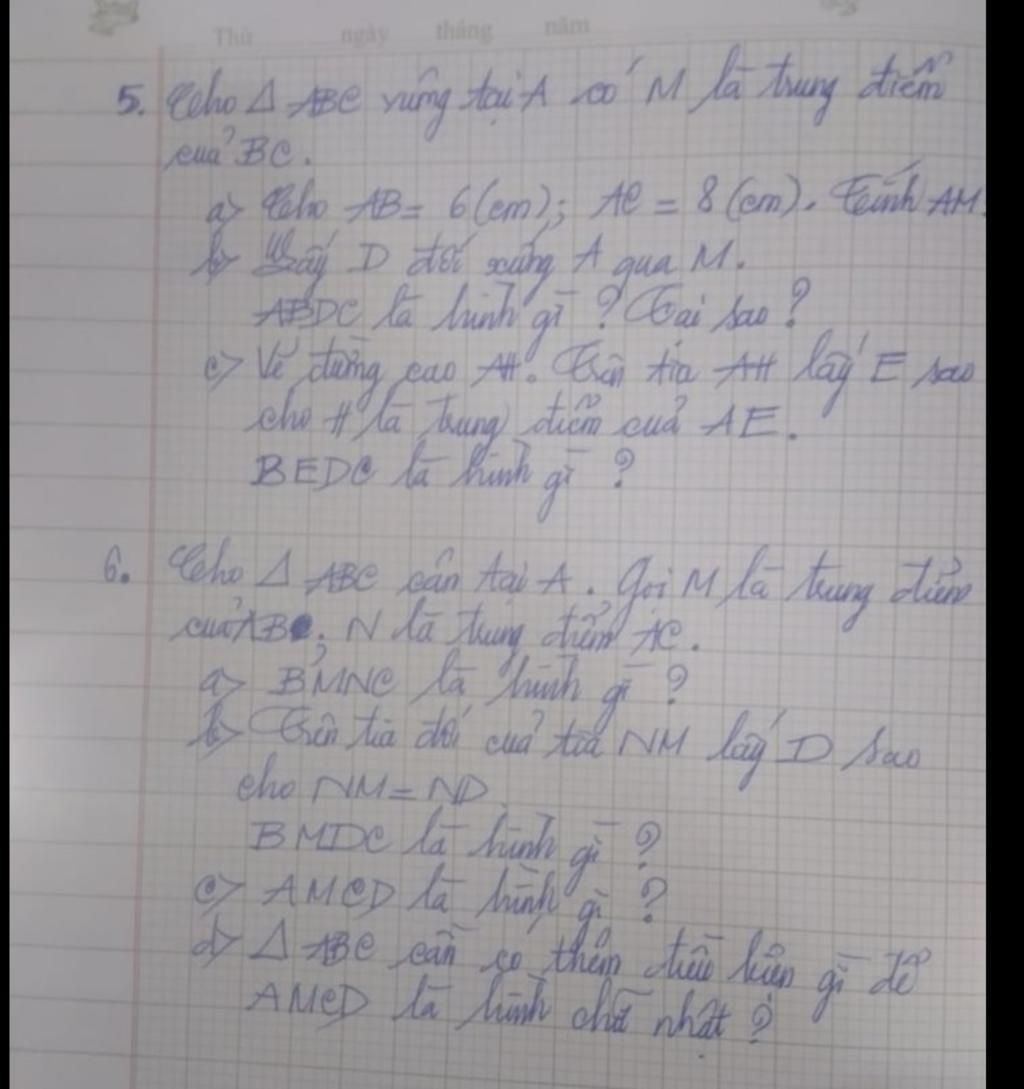 Thứ ngày tháng năm
5. Cho Δ ABC vuông tại A có M là trung điểm
của BC.
a) Cho AB = 6 (cm); AC = 8 (cm). Tính AM.
b) Lấy D đối xứng A qua M.
ABDC là hình gì ? Tại sao ?
c) Vẽ đường cao AH. Trên tia AH lấy E sao
cho H là trung điểm của AE.
BEDC là hình gì ?
6. Cho Δ ABC cân tại A. Gọi M là trung điểm
của AB, N là trung điểm AC.
a) BMNC là hình gì ?
b) Trên tia đối của tia NM lấy D sao
cho NM = ND
BMDC là hình gì ?
c) AMCD là hình gì ?
d) Δ ABC cần có thêm điều kiện gì để
AMCD là hình chữ nhật ?